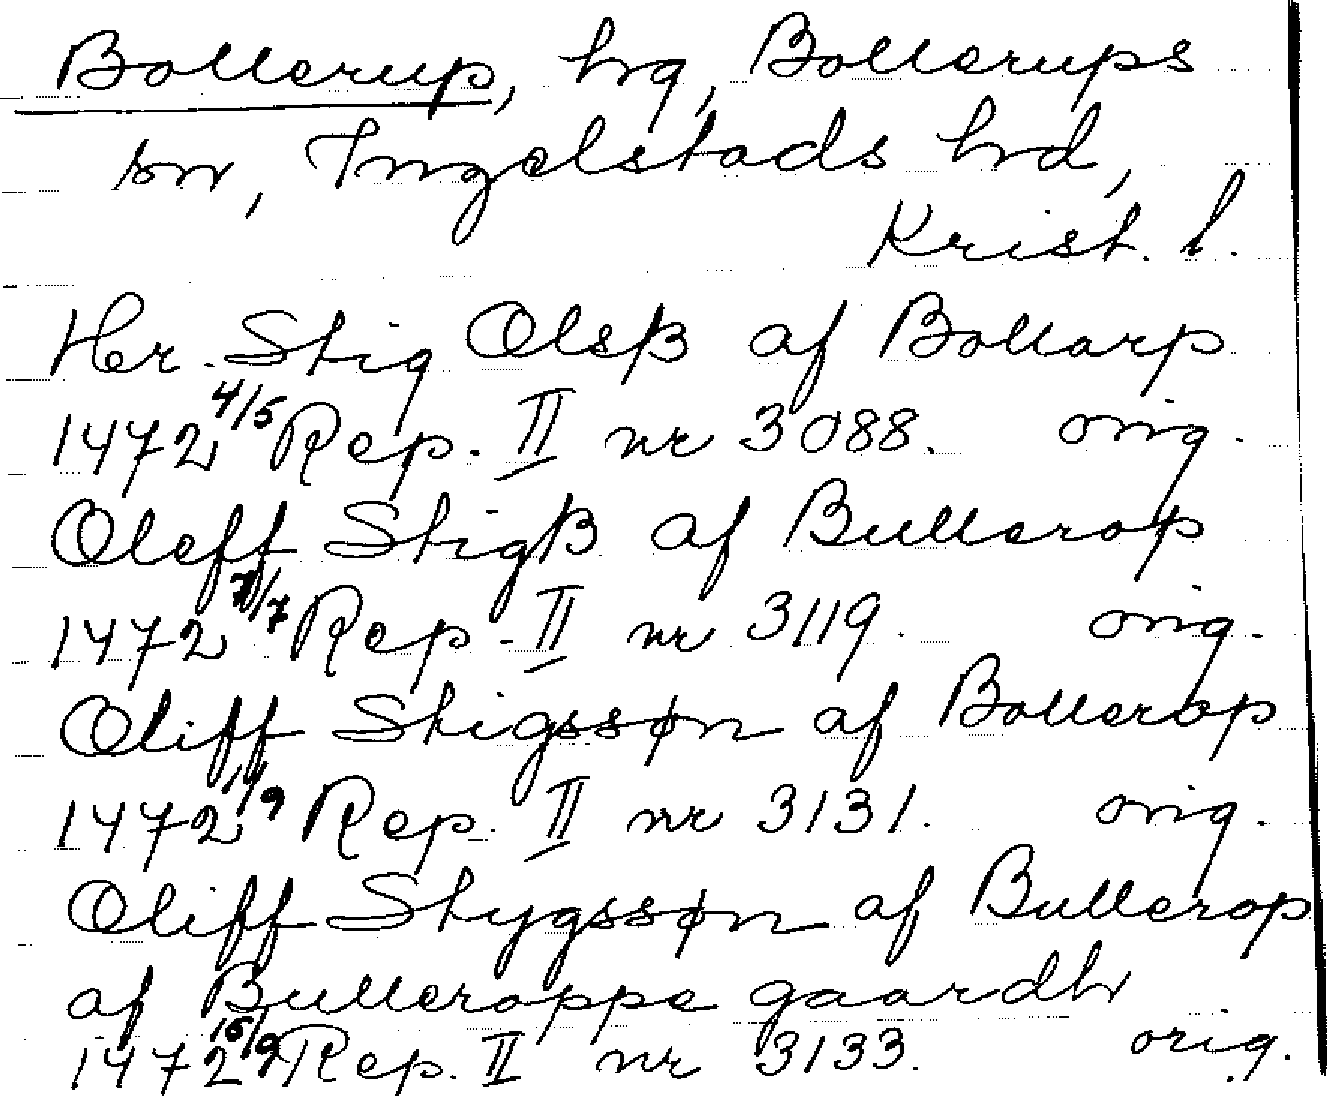 Bollerup, hg, Bollerups
sn, Ingelstads hd,
Krist. l.
Her Stig Olsß af Bollarp
1472 4/5 Rep. II nr 3088. orig.
Oleff Stigß af Bullerop
1472 7/7 Rep. II nr 3119. orig.
Oliff Stigssøn af Bollerop
1472 14/9 Rep. II nr 3131. orig.
Oliff Stygssøn af Bullerop
af Bulleroppe gaardh
1472 15/9 Rep. II nr 3133. orig.